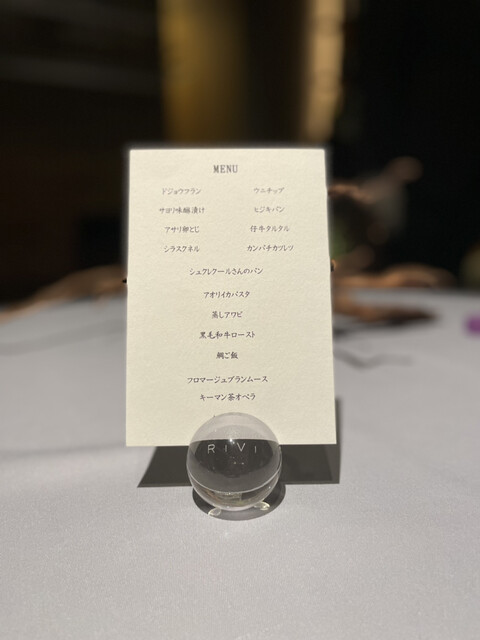 MENU
ドジョウフラン ウニチップ
サヨリ味醂漬け ヒジキパン
アサリ卵とじ 仔牛タルタル
シラスクネル カンパチカツレツ
シュクレクールさんのパン
アオリイカパスタ
蒸しアワビ
黒毛和牛ロースト
鯛ご飯
フロマージュブランムース
キーマン茶オペラ
RiVi